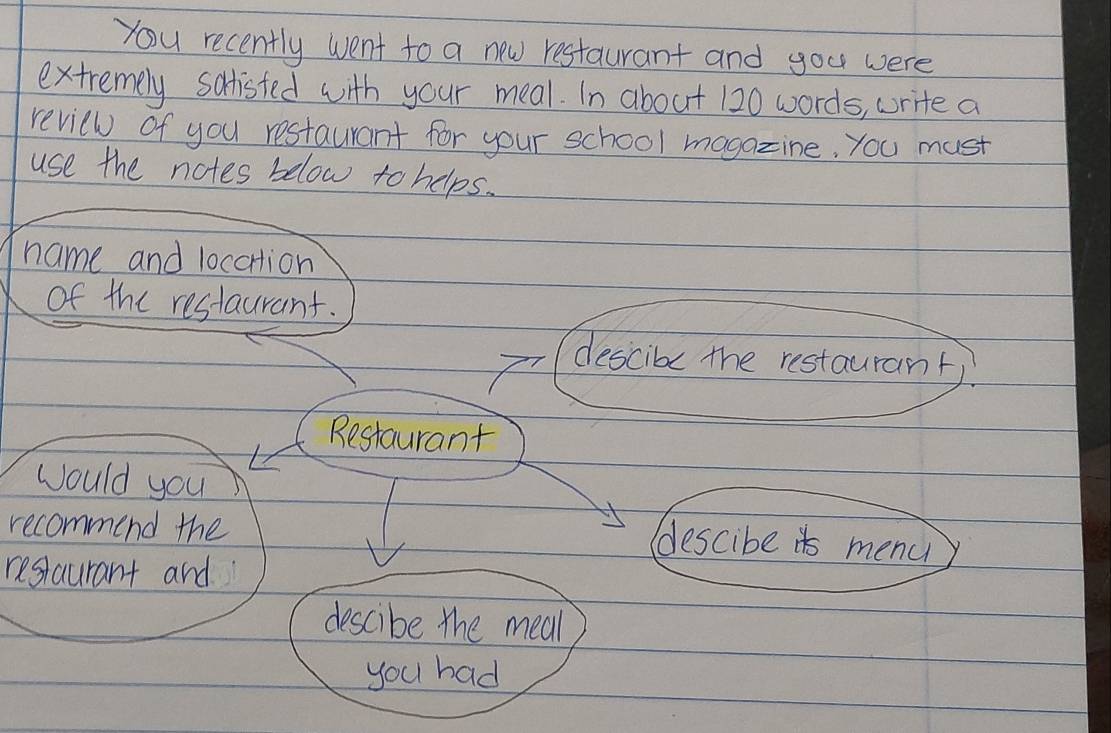 You recently went to a new restaurant and you were
extremely satisted with your meal. In about 120 words, write a
review of you restaurant for your school magazine. You must
use the notes below to helps.
name and location
of the restaurant.
descibe the restaurant.
Restaurant
Would you
recommend the
restaurant and
descibe its menu
descibe the meal
you had